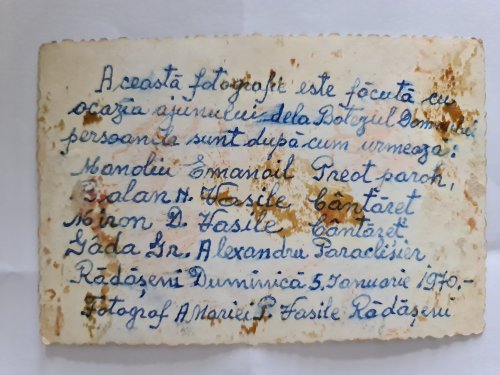 Această fotografie este făcută cu
ocazia ajunului dela Botezul Domnului
persoanele sunt după cum urmeaza:
Manoliu Emanoil Preot paroh,
Balan N. Vasile Cântăreț
Miron D. Vasile Cântăreț
Gâda Gr. Alexandru Paraclisier
Rădășeni Duminică 5, Ianuarie 1970,-
Fotograf AMariei P. Vasile Rădășeni